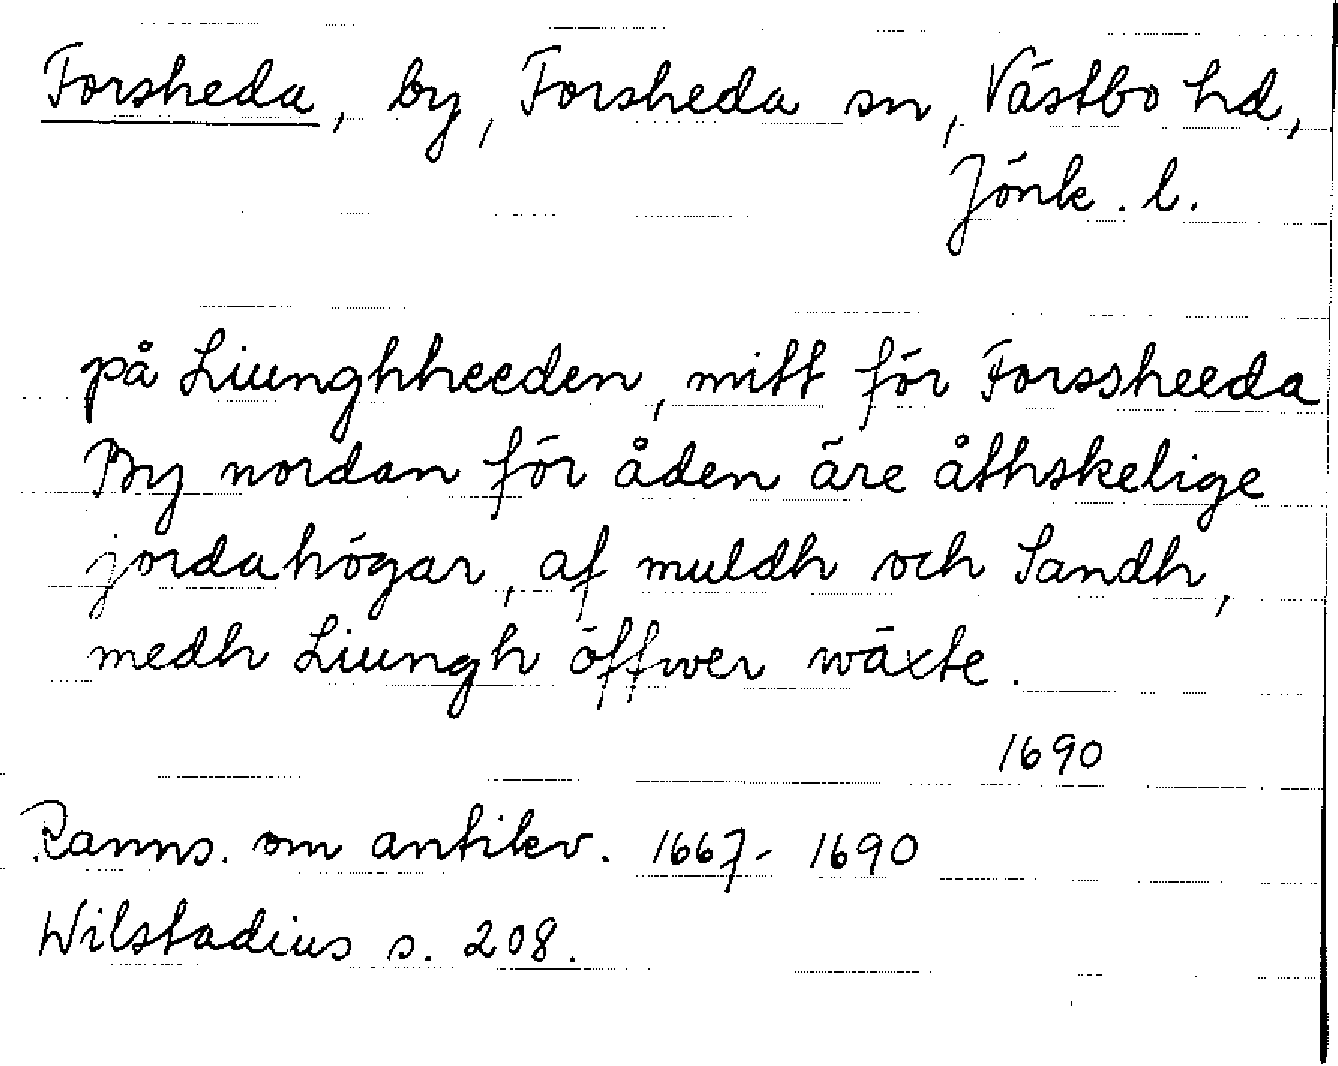 Forsheda, by, Forsheda sn, Västbo hd,
Jönk. l.
på Liunghheeden, mitt för Forssheeda
By nordan för åden äre åthskelige
jordahögar, af muldh och Sandh,
medh Liungh öffwer wäxte.
1690
Ranns. om antikv. 1667- 1690
Wilstadius s. 208.